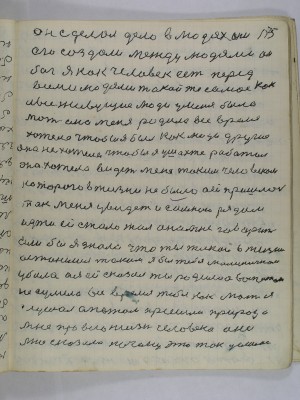 он сделал дело в людях они 175
его создали между людями он
бог я как человек ест перед
всеми людями такой же самое как
и вне живущие люди у меня была
мать она меня родила все время
хотела чтобы я был как люди другие
она не хотела чтобы я у шахте работал
она хотела видет меня таким человеком
которого в жизни не было ей пришлося
так меня увидет и самной рядом
идти ей стало жал она мне говорит
если бы я знала что ты такой в жизни
останишся таким я бы тебя маленьким
убила а я ей сказал ты родила а воспитат
не сумела все время тебя как мат я
слушал а потом пришла природа
мне про всю жизн человека она
мне сказала почему это так делаем